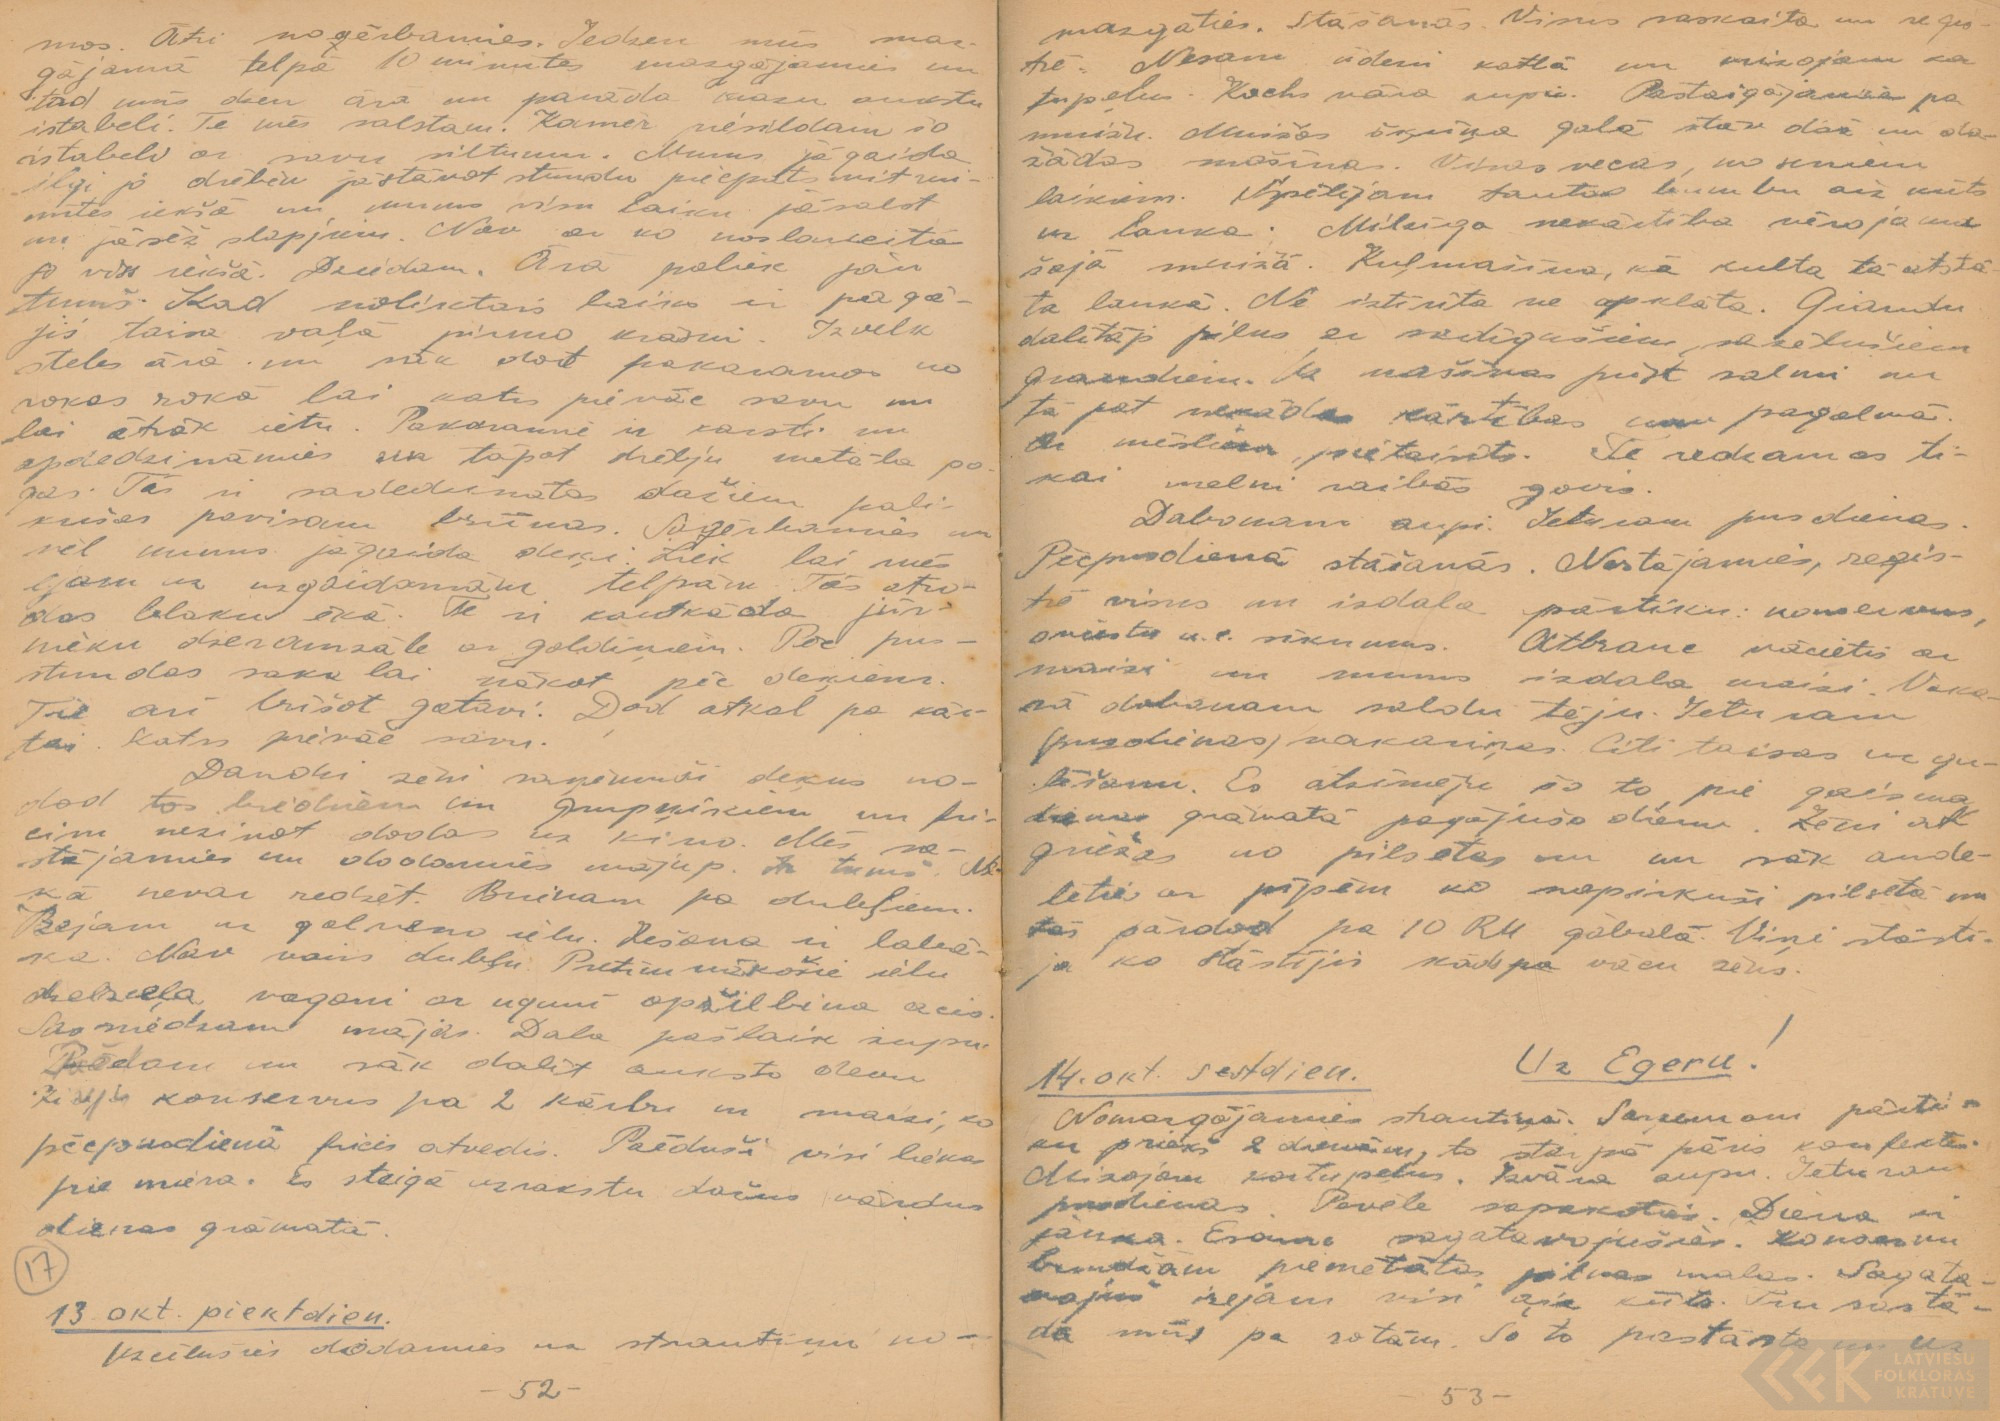 mos. Ātri noģērbamies. Iedzen mūs maz-
gājamā telpā 10 minūtes mazgājamies un
tad mūs dzen ārā un parāda mazu aukstu
istabeli. Te mēs salstam. Kamēr piesildam šo
istabeli ar savu siltumu. Mums jāgaida
ilgi jo drēbēm jāstāvot stundu piecpadsmit mi-
nūtes iekšā un mums visu laiku jāsalst
un jāsēž slapjiem. Nav ar ko noslaucītā
jo viss iekšā. Dziedam. Ārā paliek pār
tumš. Kad noliktais laiks ir pagā-
jis taisa vaļā pirmo krāsni. Izvelk
steles ārā un sāk dot pakaramos no
rokas rokā lai katrs pievāc savu un
lai ātrāk ietu. Pakaramie ir karsti un
apdedzināmies un tāpat drēbju metāla po-
gas. Tās ir sadedzinātas dažiem pali-
kušas pavisam brūnas. Saģērbamies un
vēl mums jāgaida deķi. Liek lai mēs
ejam uz uzgaidamām telpām. Tās atro-
das blaku ēkā. Te ir kautkāda jūr-
nieku dzeramzāle ar galdiņiem. Pēc pus-
stundas saka lai nākot pēc deķiem.
Tie arī būšot gatavi. Dod atkal pa kār-
tai. Katrs pievāc savu.
Daudzi zēni saņēmuši deķus no-
dod tos biedriem un grupniekiem un fri-
cim nezinot dodas uz kino. Mēs sa-
stājamies un dodamies mājup. Ir tumš. Ne-
kā nevar redzēt. Brienam pa dubļiem.
Izejam uz galveno ielu. Iešana ir labā-
ka. Nav vairs dubļu. Pretim nākošie ielu
dzelzceļa vagoni ar uguni apžilbina acis.
Sasniedzam mājas. Dala pašlaik zupu.
Paēdam un sāk dalīt auksto devu
konservus pa 2 kārbu un maizi, ko
pēcpusdienā fricis atvedis. Paēduši visi liekas
pie miera. Es steigā uzrakstu dažus vārdus
dienas grāmatā.
17
13. okt. piektdien.
Izcēlušies dodamies uz strautiņu no-
- 52 -
mazgāties. Stāšanās. Visus saskaita un reģis-
trē. Nesam ūdeni katlā un mizojam ka
tupeļus. Kochs vāra zupu. Pastaigājamies pa
muižu. Muižas šķūņa galā stāv daž un da-
žādas mašīnas. Visas vecas, no seniem
laikiem. Izpētījam tautas bumbu aiz mūts
uz lauka. Milzīga nekārtība vērojama
šajā muižā. Kuļmašīna, kā kulta tā atstā-
ta laukā. Ne iztīrīta ne apklāta. Graudu
dalītājs pilns ar sadīgušiem, sazēlušiem
graudiem. Uz mašīnas pūst salmi un
tā pat nekādas kārtības nav pagalmā.
Ar mēsliem pietaisīts. Te redzamas ti-
kai melni raibās govis.
Dabonam zupi. Ieturam pusdienas.
Pēcpusdienā stāšanās. Nostājamies, reģis-
trē visus un izdala pārtiku: konservus,
sviestu u.c. sīkumus. Atbrauc vācietis ar
maizi un mums izdala maizi. Vaka-
rā dabonam saldu tēju. Ieturam
(pusdienas) vakariņas. Citi taisas uz gu-
lēšanu. Es atzīmēju šo to pie gaismas
dienas grāmatā pagājušo dienu. Zēni at
griežas no pilsētas un un sāk ande-
lēties ar pīpēm ko sapirkuši pilsētā un
tās pārdod pa 10 RM gabalā. Viņi stāstī-
ja ko stāstījis kāds vācu zēns.
14. okt. sestdien.
Uz Egeru!
Nomazgājamies strautiņā. Saņemam pārti-
ku priekš 2 dienām, to starpā pāris konfektes.
Mizojam kartupeļus. Izvāra zupu. Ieturam
pusdienas. Pavēle sapakoties. Diena ir
jauka. Esam sagatavojušies. Konservu
bundžām piemētātas pilnas malas. Sagata-
vojuš izejam visi aiz kūts. Tur sastā-
da mūs pa rotām. Šo to pastāsta un uz
- 53 -
LATVIEŠU
FOLKLORAS
KRĀTUVE